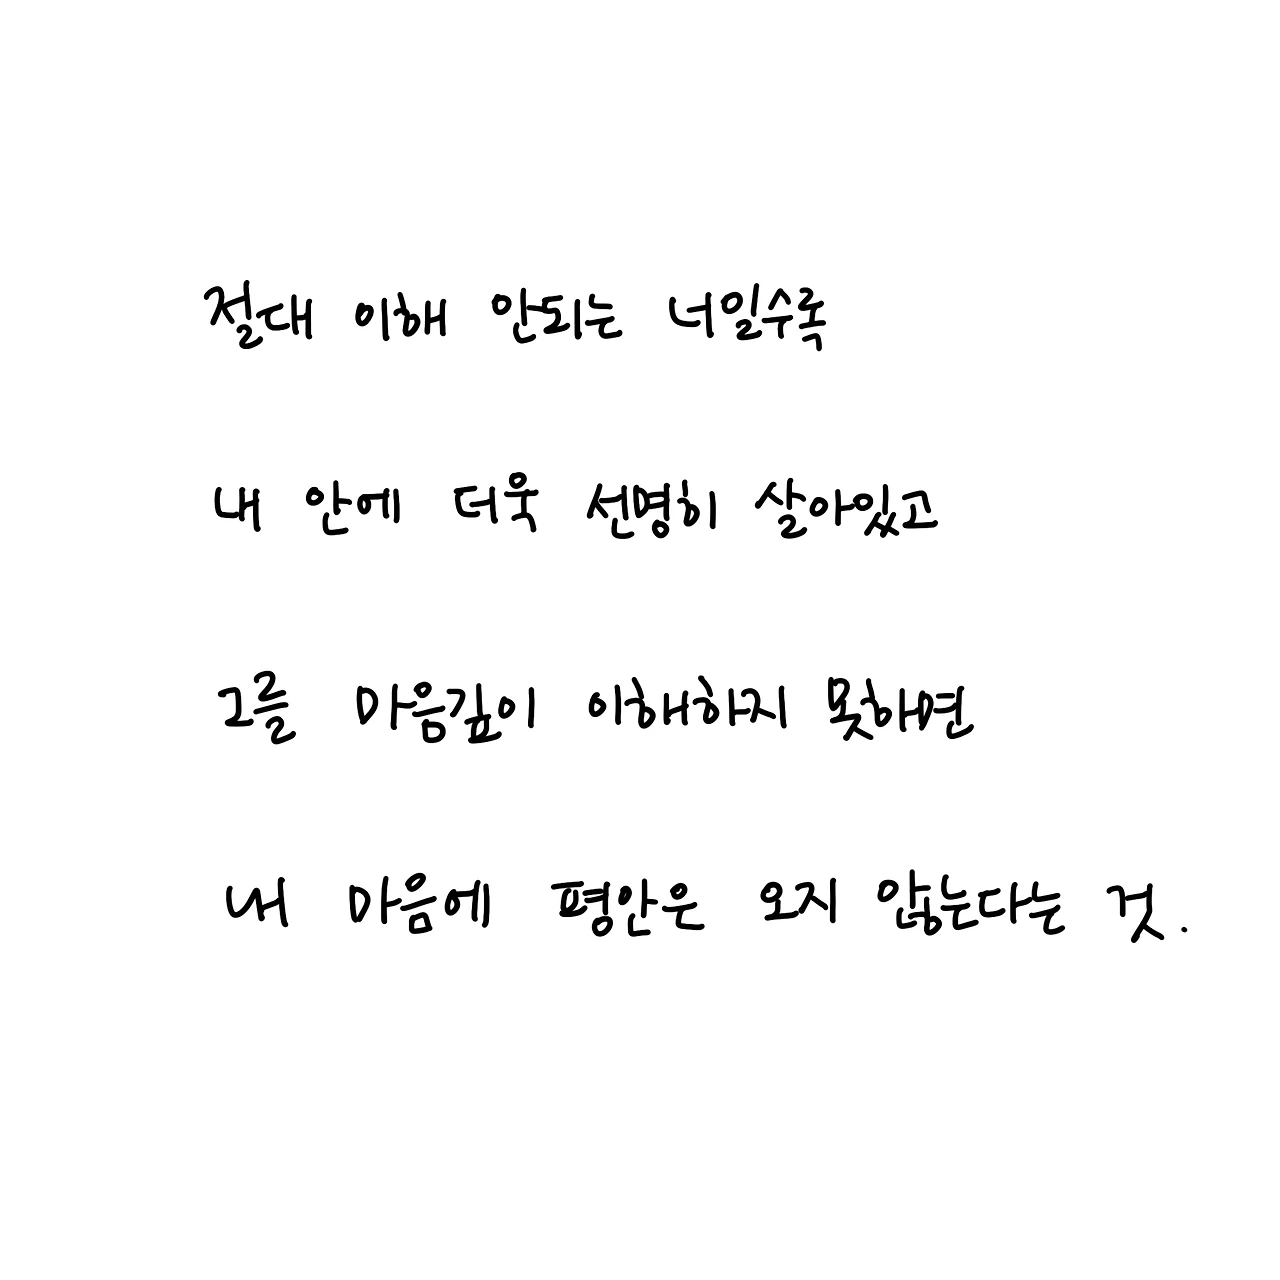 절대 이해 안되는 너일수록
내 안에 더욱 선명히 살아있고
그를 마음깊이 이해하지 못하면
내 마음에 평안은 오지 않는다는 것.